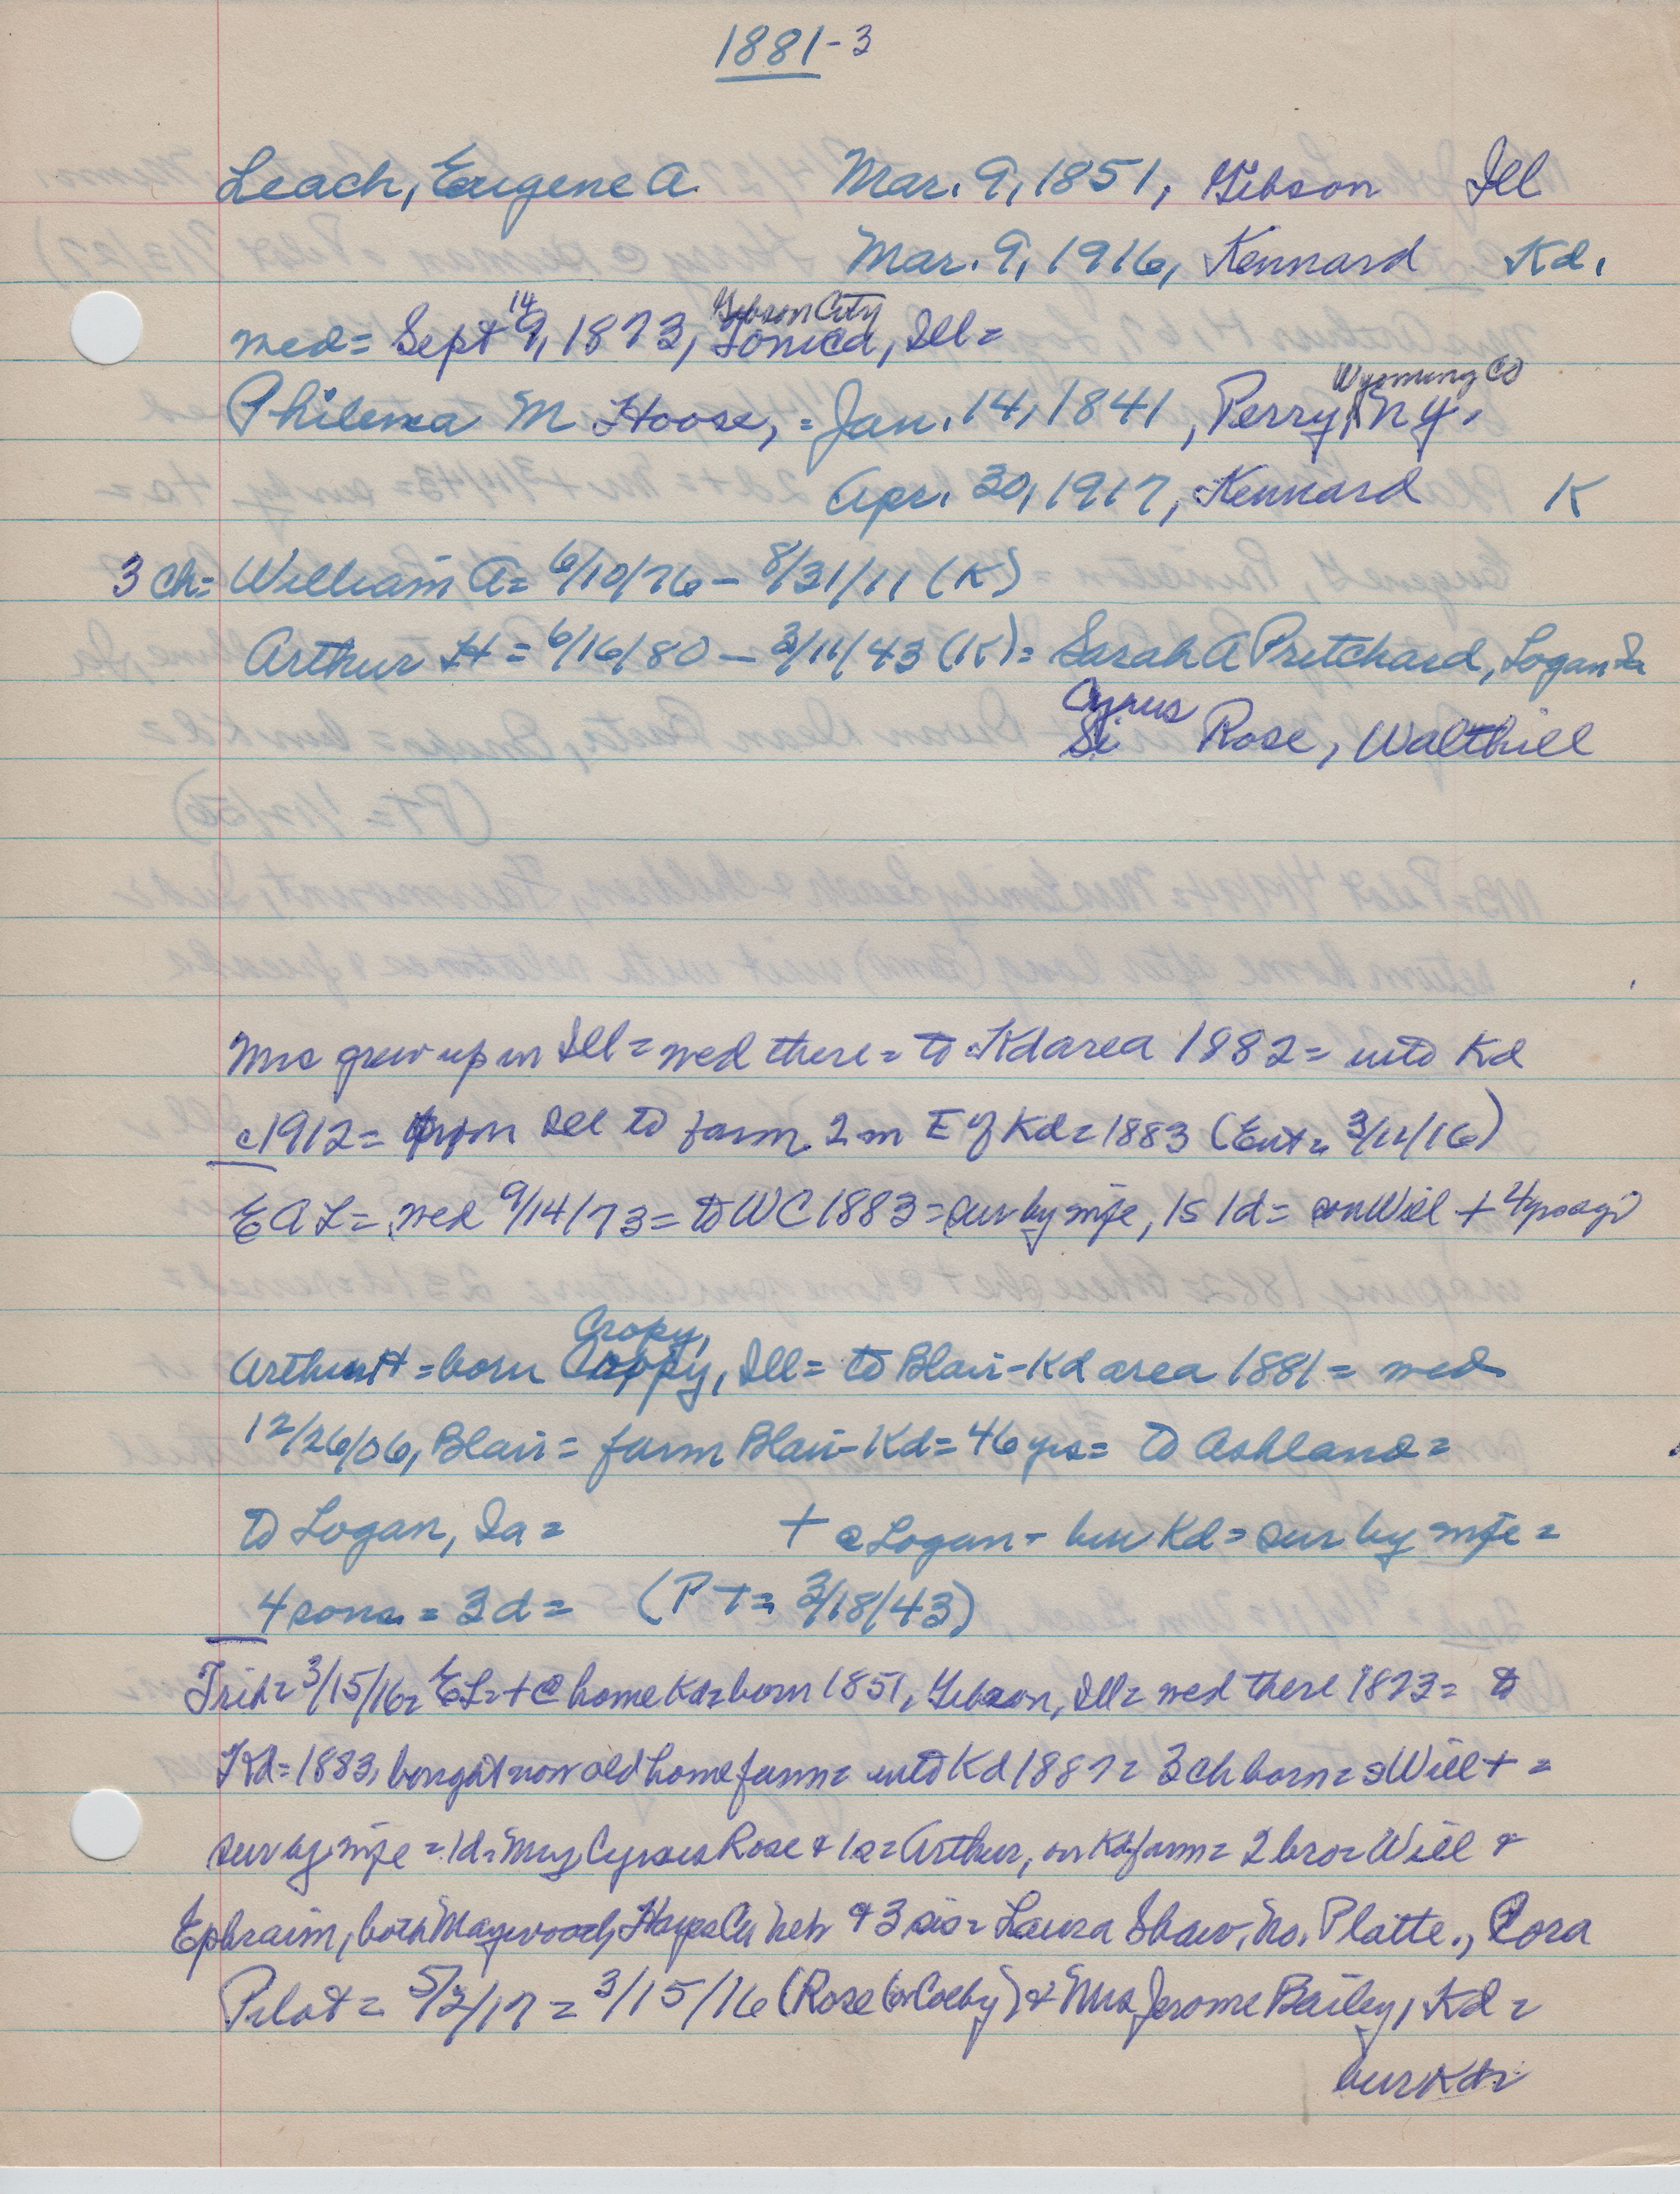 1881-3
Leach, Eugene A. Mar. 9, 1851, Gibson Ill
Mar. 9, 1916, Kennard Kd.
14 Gibson City
wed= Sept 9, 1873, Tonica, Ill=
Wyoming Co
Philena M Hoose, = Jan. 14, 1841, Perry, N Y.
Apr. 30, 1917, Kennard K
3 ch= William A= 6/10/76 - 8/31/11 (K)
Arthur H = 6/16/80 - 3/11/43 (K)= Sarah A Pritchard, Logan Ia
Cyrus
Si Rose, Walthill
Mrs grew up in Ill= wed there= to Kd area 1882= into Kd
c1912= from Ill to farm 2 m E of Kd= 1883 (Ent= 3/11/16)
E A L= wed 9/14/73= to WC 1883= sur by wife, 1s 1d= son Will + 4 yrs ago
Cropy,
Arthur H =born Ill= to Blair-Kd area 1881= wed
12/26/06, Blair= farm Blair-Kd= 46 yrs= to Ashland=
to Logan, Ia= + @ Logan- bur Kd= sur by wife=
4 sons= 3 d= (PT= 3/18/43)
Trib= 3/15/16= EL=+ @ home Kd= born 1851, Gibson, Ill= wed there 1873= to
Kd= 1883, bought now old home farm= into Kd 1887= 3 ch born= Will + =
sur by wife= 1d= Mrs Cyrus Rose & 1s= Arthur, on Kd farm= 2 bro= Will &
Ephraim, both Maywood, Hayes Co Neb & 3 sis= Laura Shaw, No. Platte., Cora
Pilot= 5/2/17= 3/15/16 (Rose (or Coeby) & Mrs Jerome Bailey, Kd=
bur Kd=